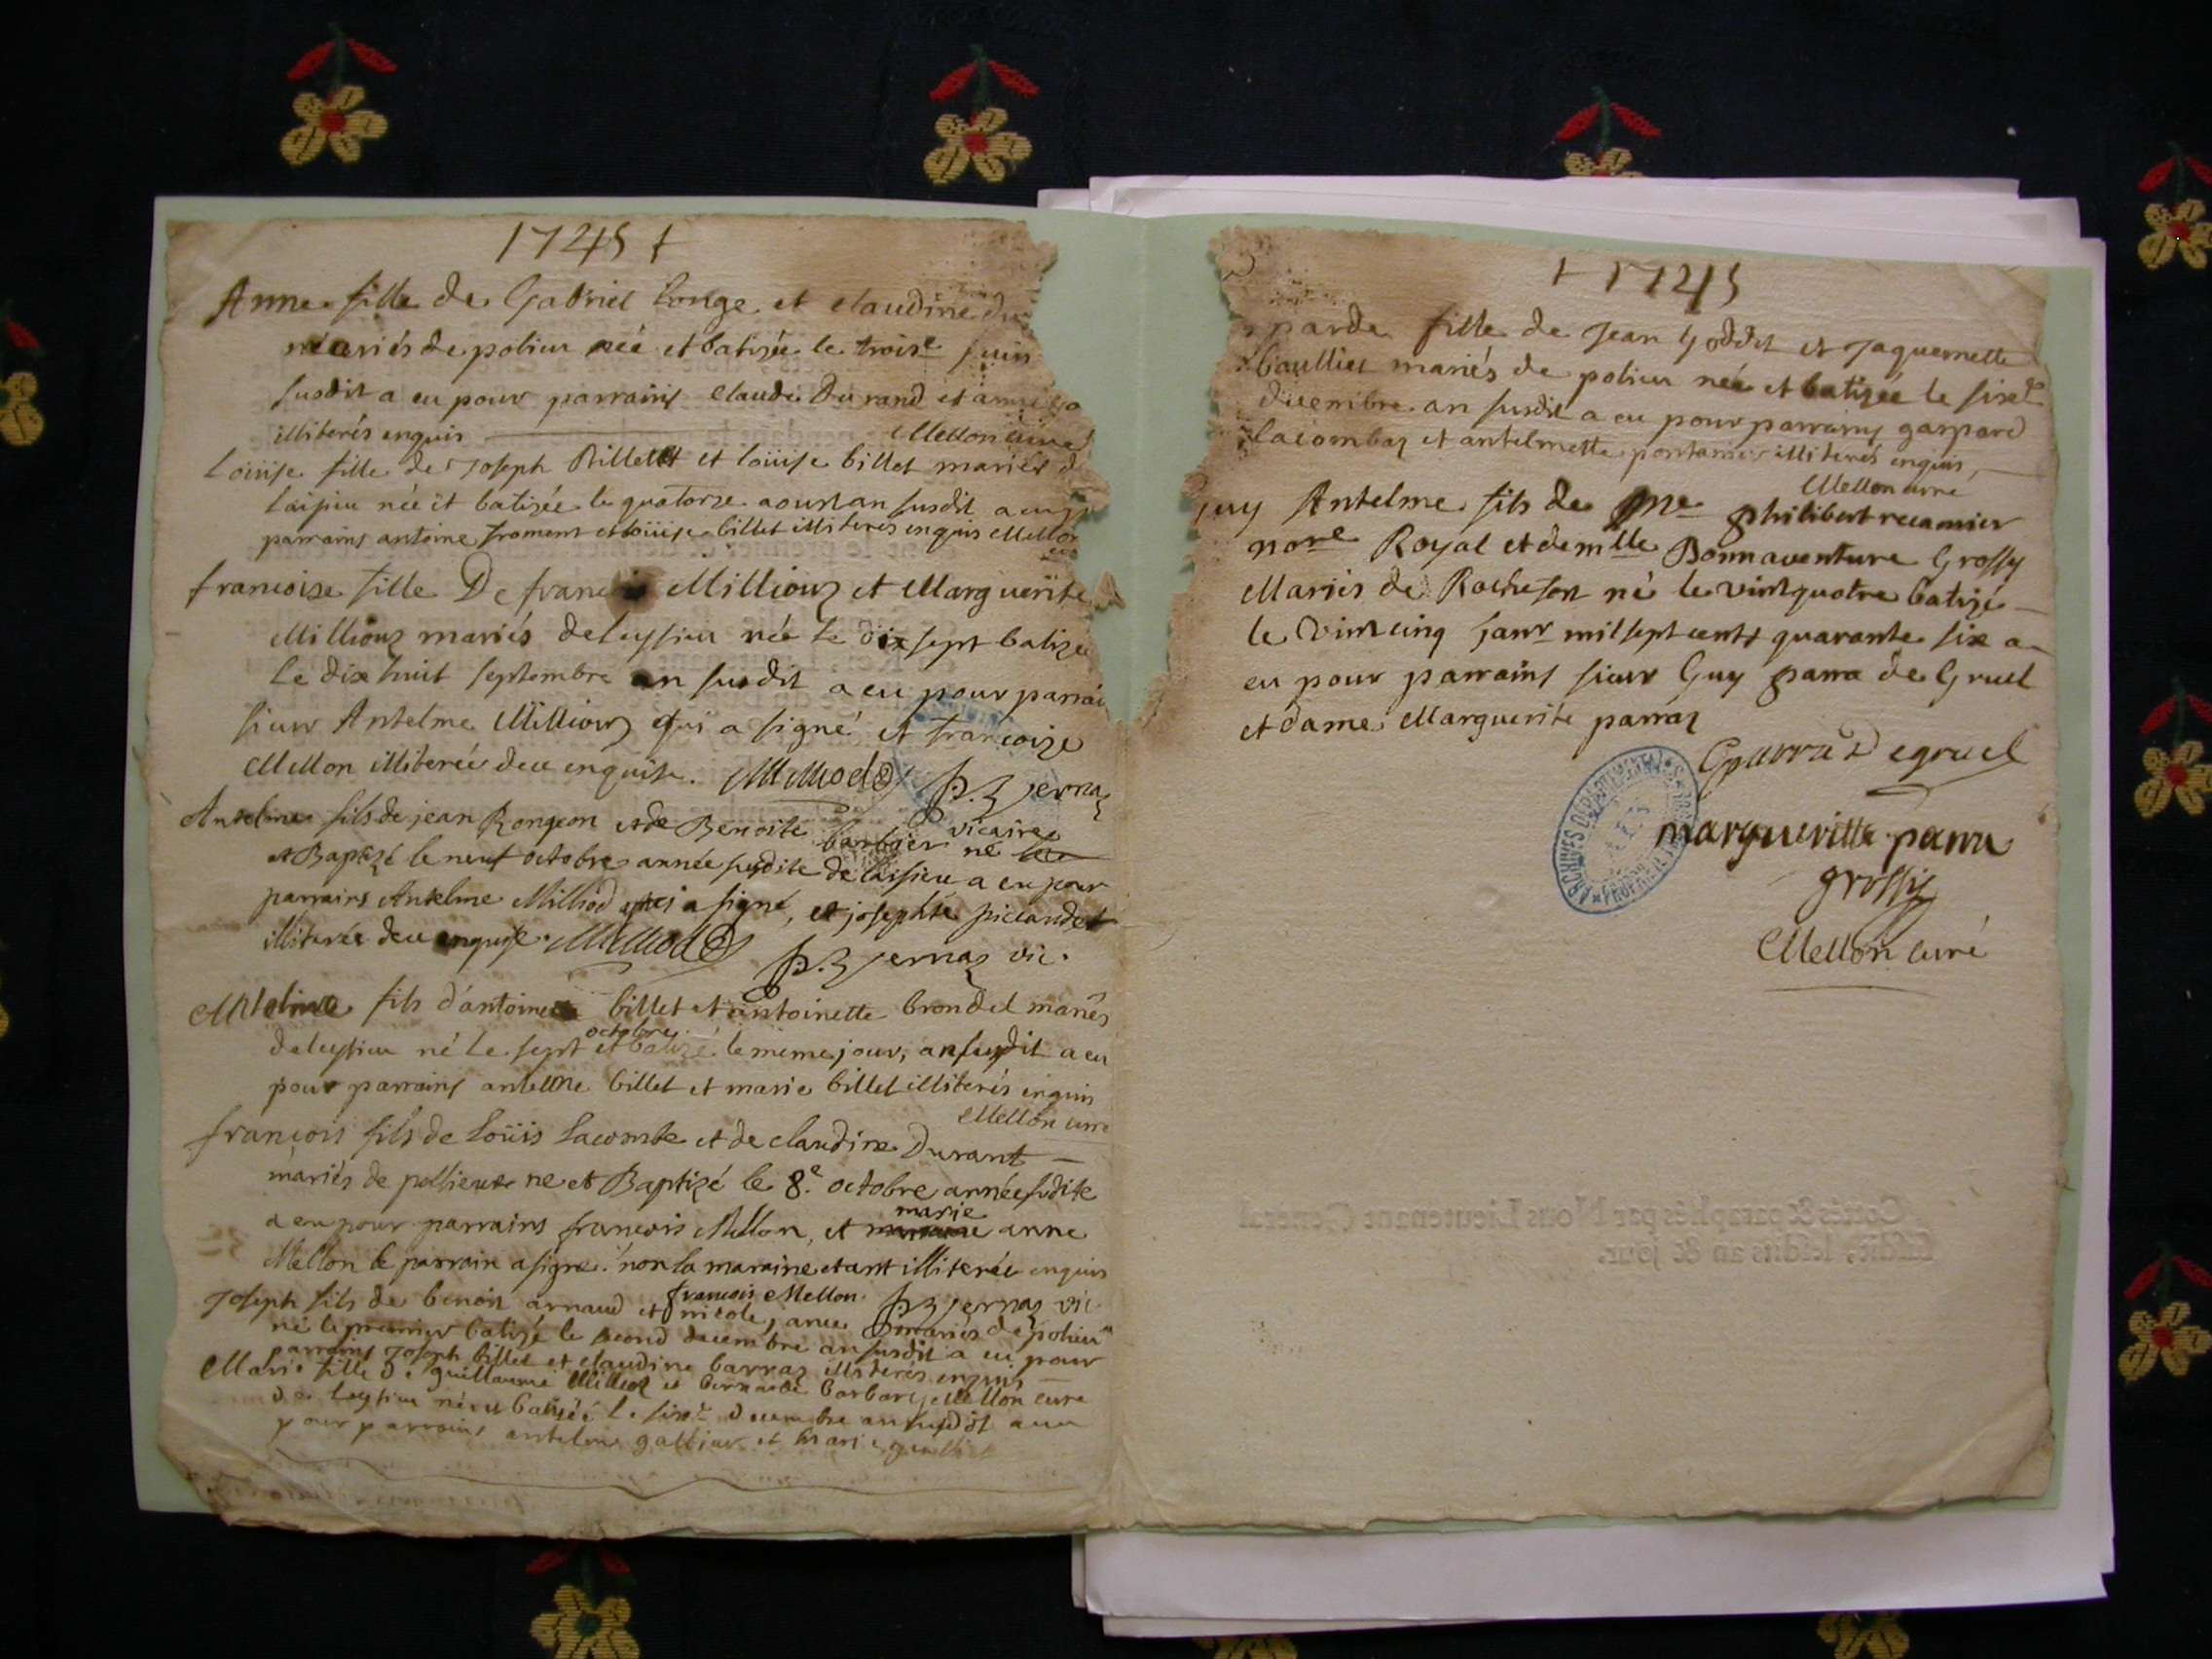 1745 +
Anne fille de Gabriel Longe et claudine du
mariés de polieu née et batisée le troise juin
susdit a eu pour parrains claude Durand et anne
illiterés enquis Mellon curé
Loüise fille de Joseph Billet et loüise billet mariés d
laisieu née et batisée le quatorze aoust an susdit a eu p
parrains antoine froment et loüise billet illiterés enquis Mellon
francoise fille De francois Millioz et Marguerite
Millioz mariés de leysieu née le dix sept batizée
le dix huit septembre an susdit a eu pour parrai
sieur Antelme Millioz qui a signé et francoize
Mellon illiterée de ce enquise. Milliod P. Jernaz
vicaire
Antelme fils de jean Rongeon et de Benoite barbier né
et Baptizé le neuf octobre année susdite de laisieu a eu pour
parrains Antelme Milliod qui a signé, et josephte piccandet
illiterée de ce enquise. Milliod P. Jernaz vic.
Antelme fils d'antoine billet et antoinette brondel mariés
de leysieu né le sept octobre et batizé le meme jour, an susdit a eu
pour parrains antelme billet et marie billet illiterés enquis
Mellon curé
françois fils de Loüis Lacombe et de claudine Durant
mariés de pollieu ne et Baptizé le 8e. octobre année sudite
a eu pour parrains françois Mellon, et marie anne
Mellon le parrain a signé. non la maraine etant illiterée enquis
francois Mellon. P. Jernaz vic.
Joseph fils de benoit arnaud et nicole janee mariés de polieu
né le premier batizé le second decembre an susdit a eu pour
parrains Joseph billet et claudine barraz illiterés enquis
Marie fille de guillaume Millioz et bernarde barbary Mellon curé
de leysieu née et batizée le sixe decembre an susdit a eu
pour parrains antelme gallien et marie
+ 1745
parde fille de Jean Goddet et Jaquemette
baullier mariés de polieu née et batizée le sixe
decembre an susdit a eu pour parrains gaspard
lacombaz et antelmette pontanier illiterés enquis
Mellon curé
guy Antelme fils de Me philibert recamier
nore Royal et demlle Bonnaventure Grossy
Mariés de Rochefort né le vint quatre batizé
le vint cinq janr mil sept cents quarante six a
eu pour parrains sieur Guy parra de Gruel
et dame Marguerite parraz
Gparra Degruel
margueritte parra
grossy
Mellon curé
ARCHIVES DEPARTEMENTALES
Cottés & paraphés par Nous Lieutenant General
susdit, lesdits an & jour.